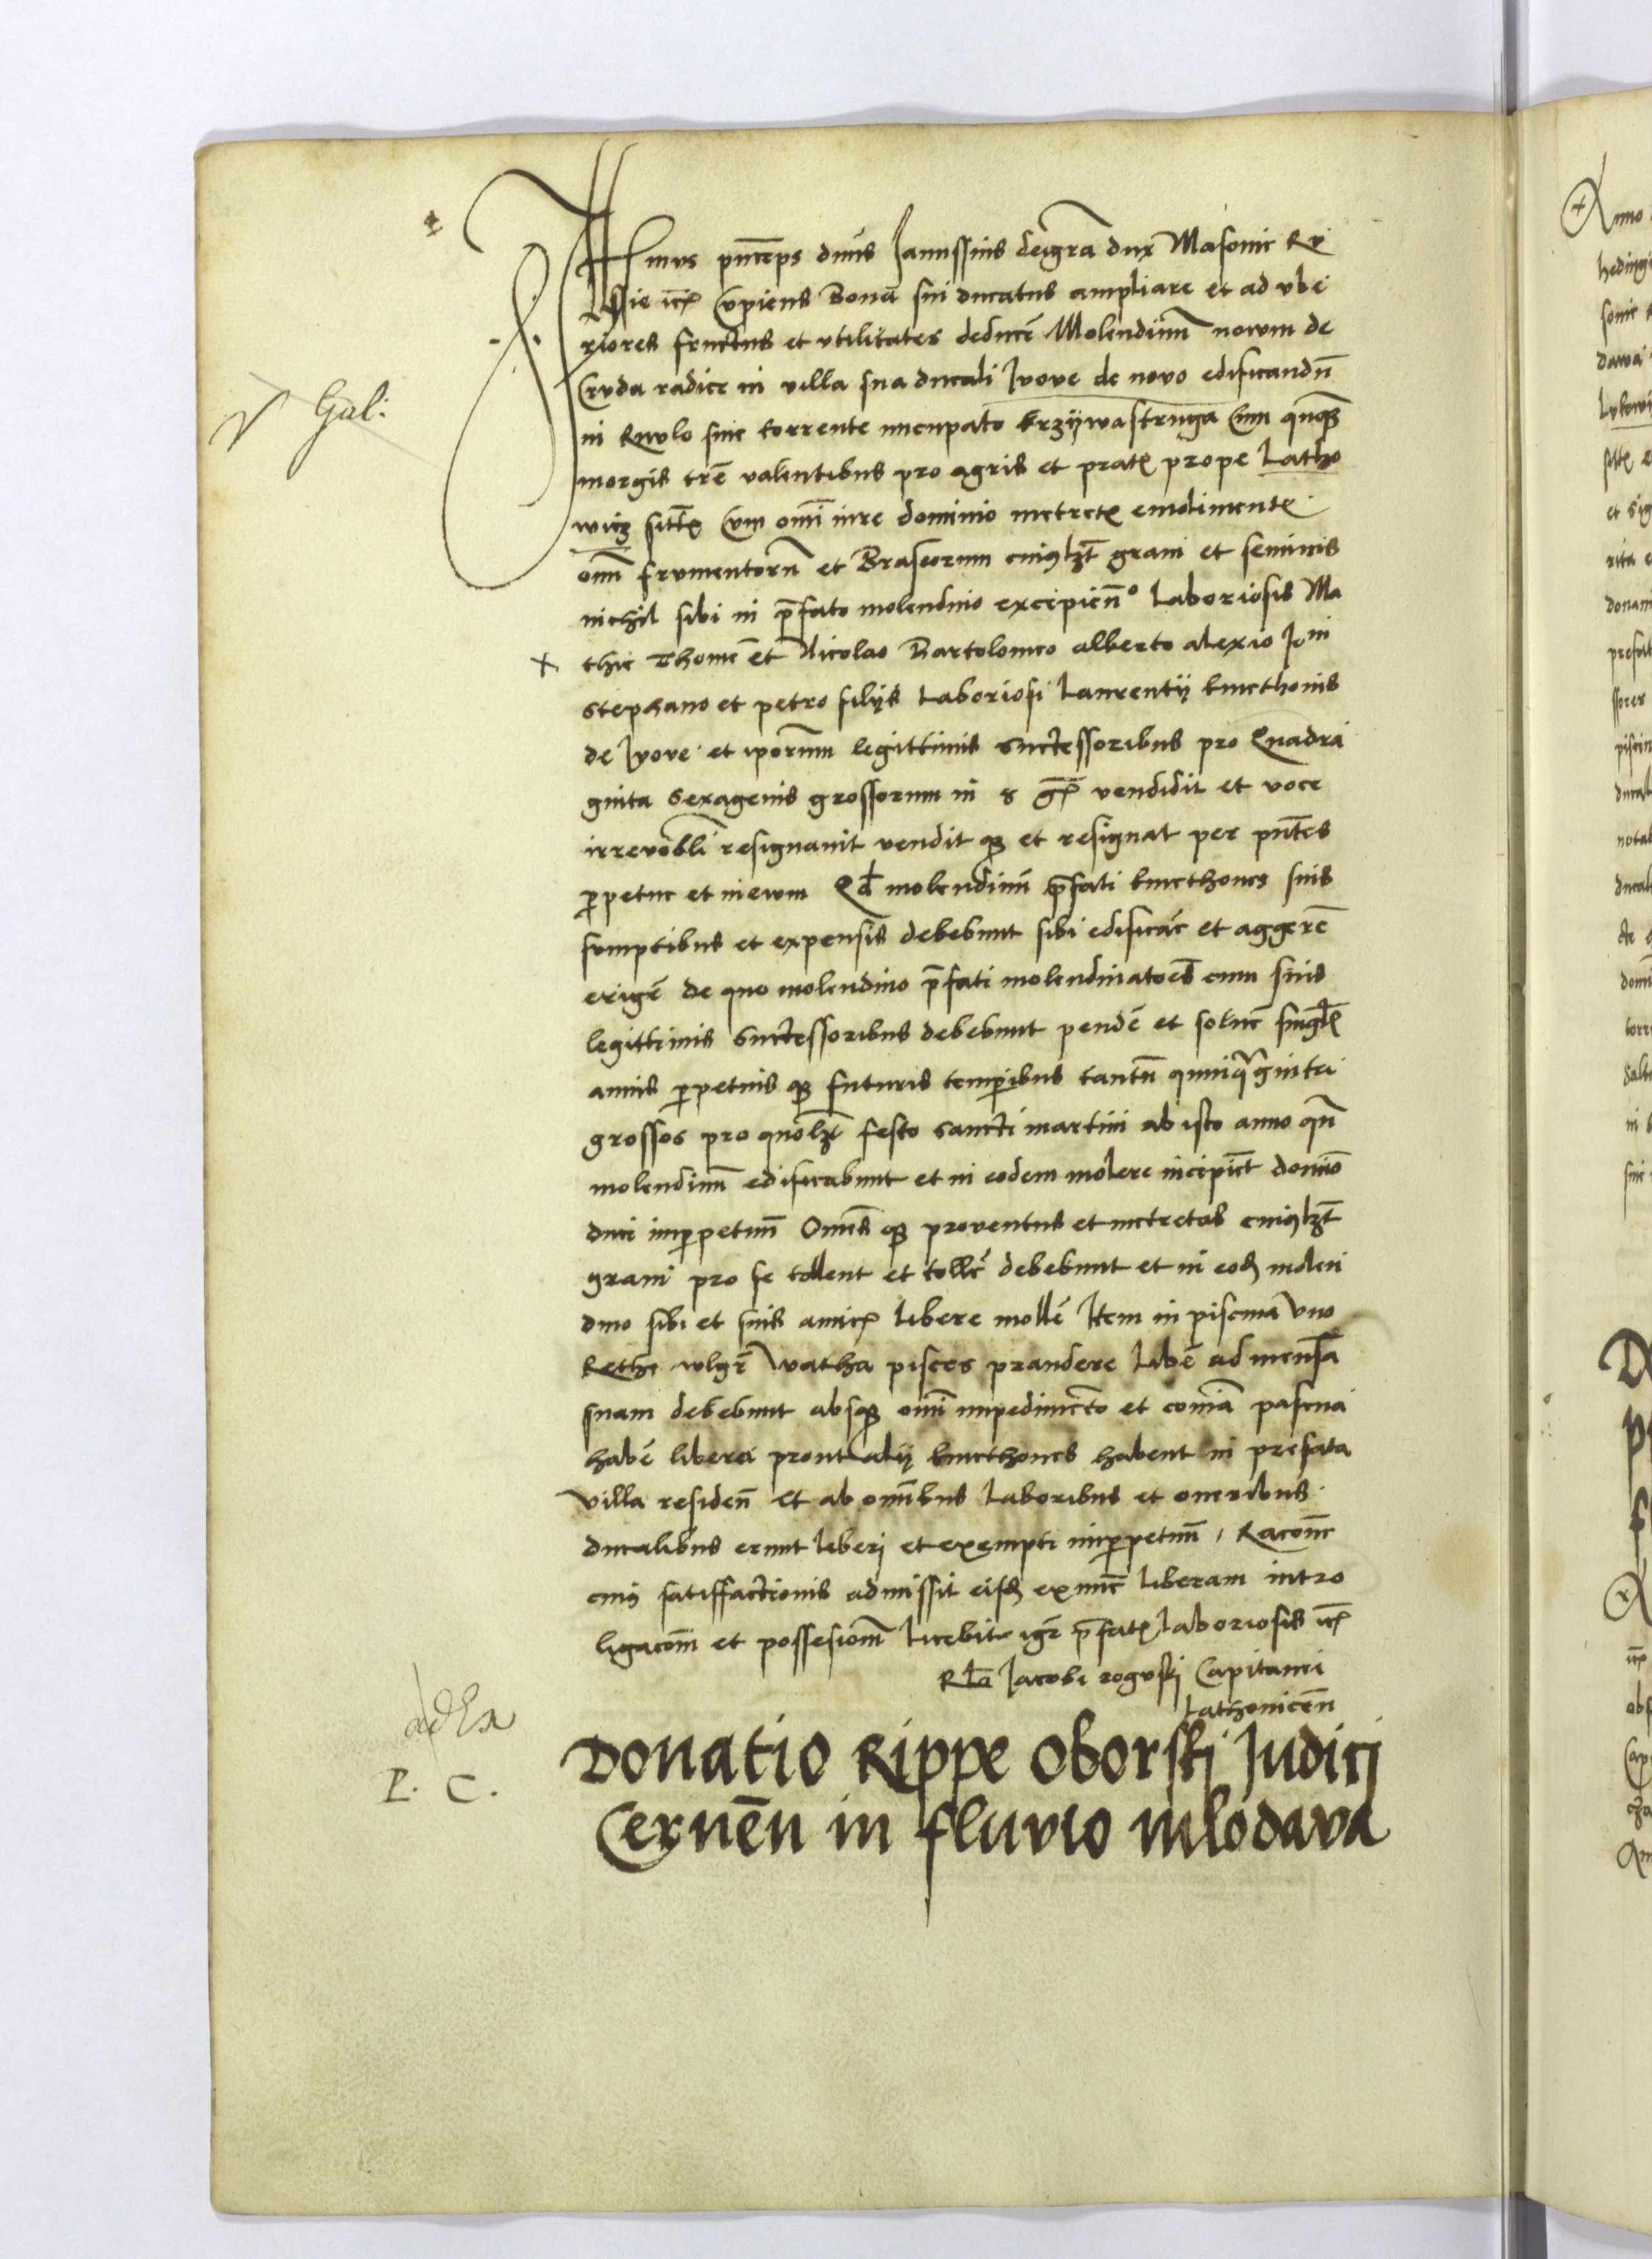 Illmus pnceps dnus Janussius dei gra dux Masouie Ru
ssie etc Cupiens Bona sui ducatus ampliare et ad vbe
riores fructus et vtilitates deducere Molendinum nouum de
Cruda radice in villa sua ducali Jvove de novo edificandu
in Riuulo siue torrente nuncupato krzÿwastruga Cum quinque
morgis tre valentibus pro agris et prat prope Latho
wicz sitt Cum omi iure dominio metret emolimentis
omi frumentoru et Braseorum cuiuslzt grani et seminis
nichil sibi in pfato molendino excipiendo Laboriosis Ma
thie Thome et Nicolao Bartolomeo alberto alexio
stephano et petro filijs Laboriosi Laurentij kmethonis
de Jvove et iporum legittimis successoribus pro Quadra
ginta sexagenis grossorum in vendidit et voce
irreuobli resignauit vendit que et resignat per pntes
ppetue et in ewm Qd molendinum pfati kmethones suis
sumptibus et expensis debebunt sibi edificare et aggere
erigere de quo molendino pfati molendinatores cum suis
legittimis successoribus debebunt pendere et soluere singlis
annis ppetuis que futuris temporibus tantum quinquaginta
grossos pro quolzt festo sancti martini ab isto anno quo
molendinum edificabunt et in eodem molere incipient domino
duci inperpetuum Omnes que proventus et metretas cuiuslzt
grani pro se tollent et tollere debebunt et in eodem molen
dino sibi et suis amicis libere molere Item in piscina Vno
Rethe wlgr Watha pisces prandere libere ad mensa
suam debebunt absque omi impedimento et comia pascua
habere libera prout alij kmethones habent in prefata
villa residen Et ab omibus laboribus et oneribus
ducalibus erunt liberj et exempti inperpetuum Racione
cuius satissfactionis admissit eisdem exnunc liberam intro
ligacom et possesionem licebit igr pfat laboriosis etc
Rla Jacobi roguski Capitanei
Lathouicen
Donatio Rippe oborski Judicj
Cernen in fluvio mlodava
V Gal:
ad Ex
P. C.